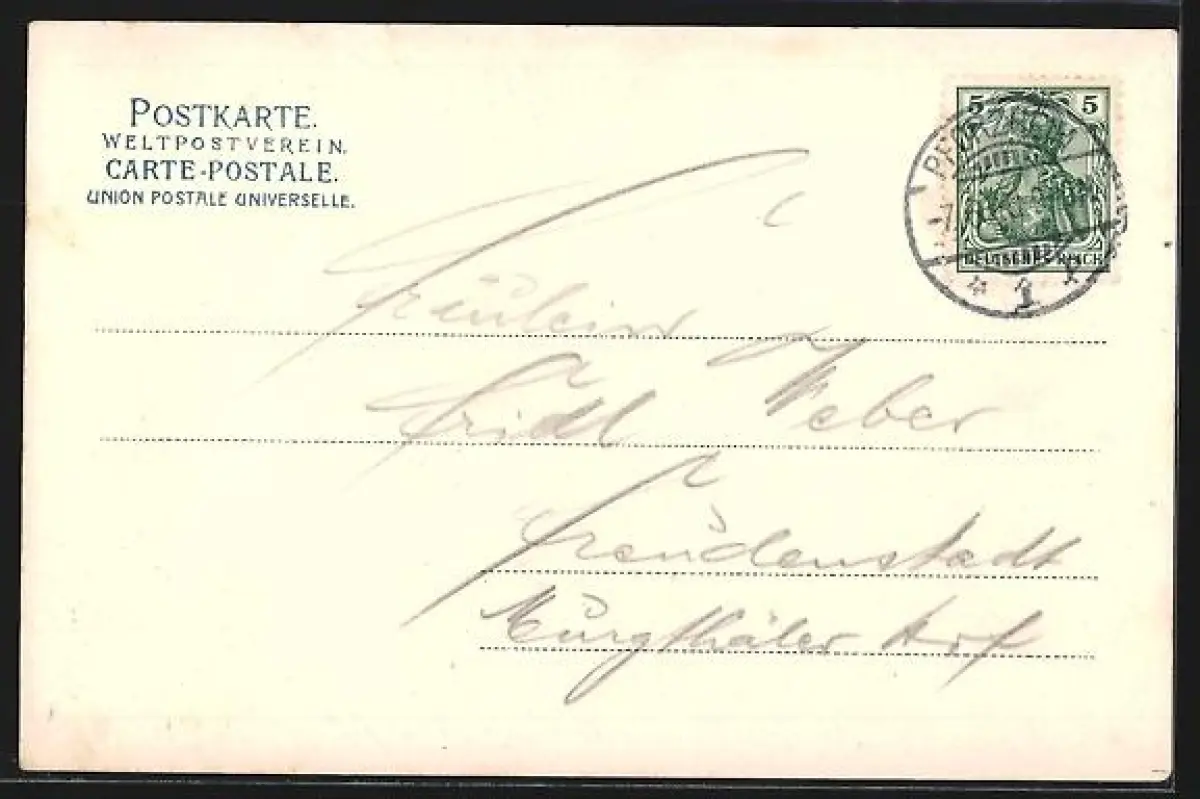 POSTKARTE.
WELTPOSTVEREIN.
CARTE-POSTALE.
UNION POSTALE UNIVERSELLE.
5 5
PFORZHEIM
DEUTSCHES REICH
Fräulein
Fridl Weber
Freudenstadt
Murgthäler Hof